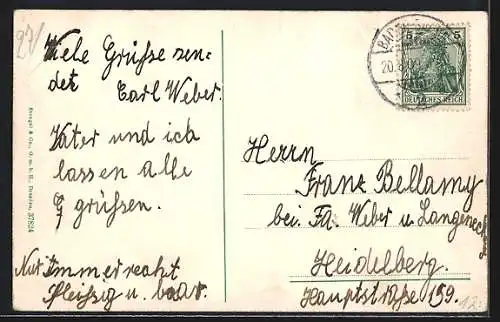 27/
Viele Grüsse sen-
det Carl Weber.
Vater und ich
lassen alle
grüssen.
Nur immer recht
fleissig u. brav.
Stengel & Co., G. m. b. H., Dresden 37824
BADEN
20.8.09
5 5
DEUTSCHES REICH
Herrn
Franz Bellamy
bei. Fa. Weber u.
Heidelberg.
Hauptstraße 159.
12.-